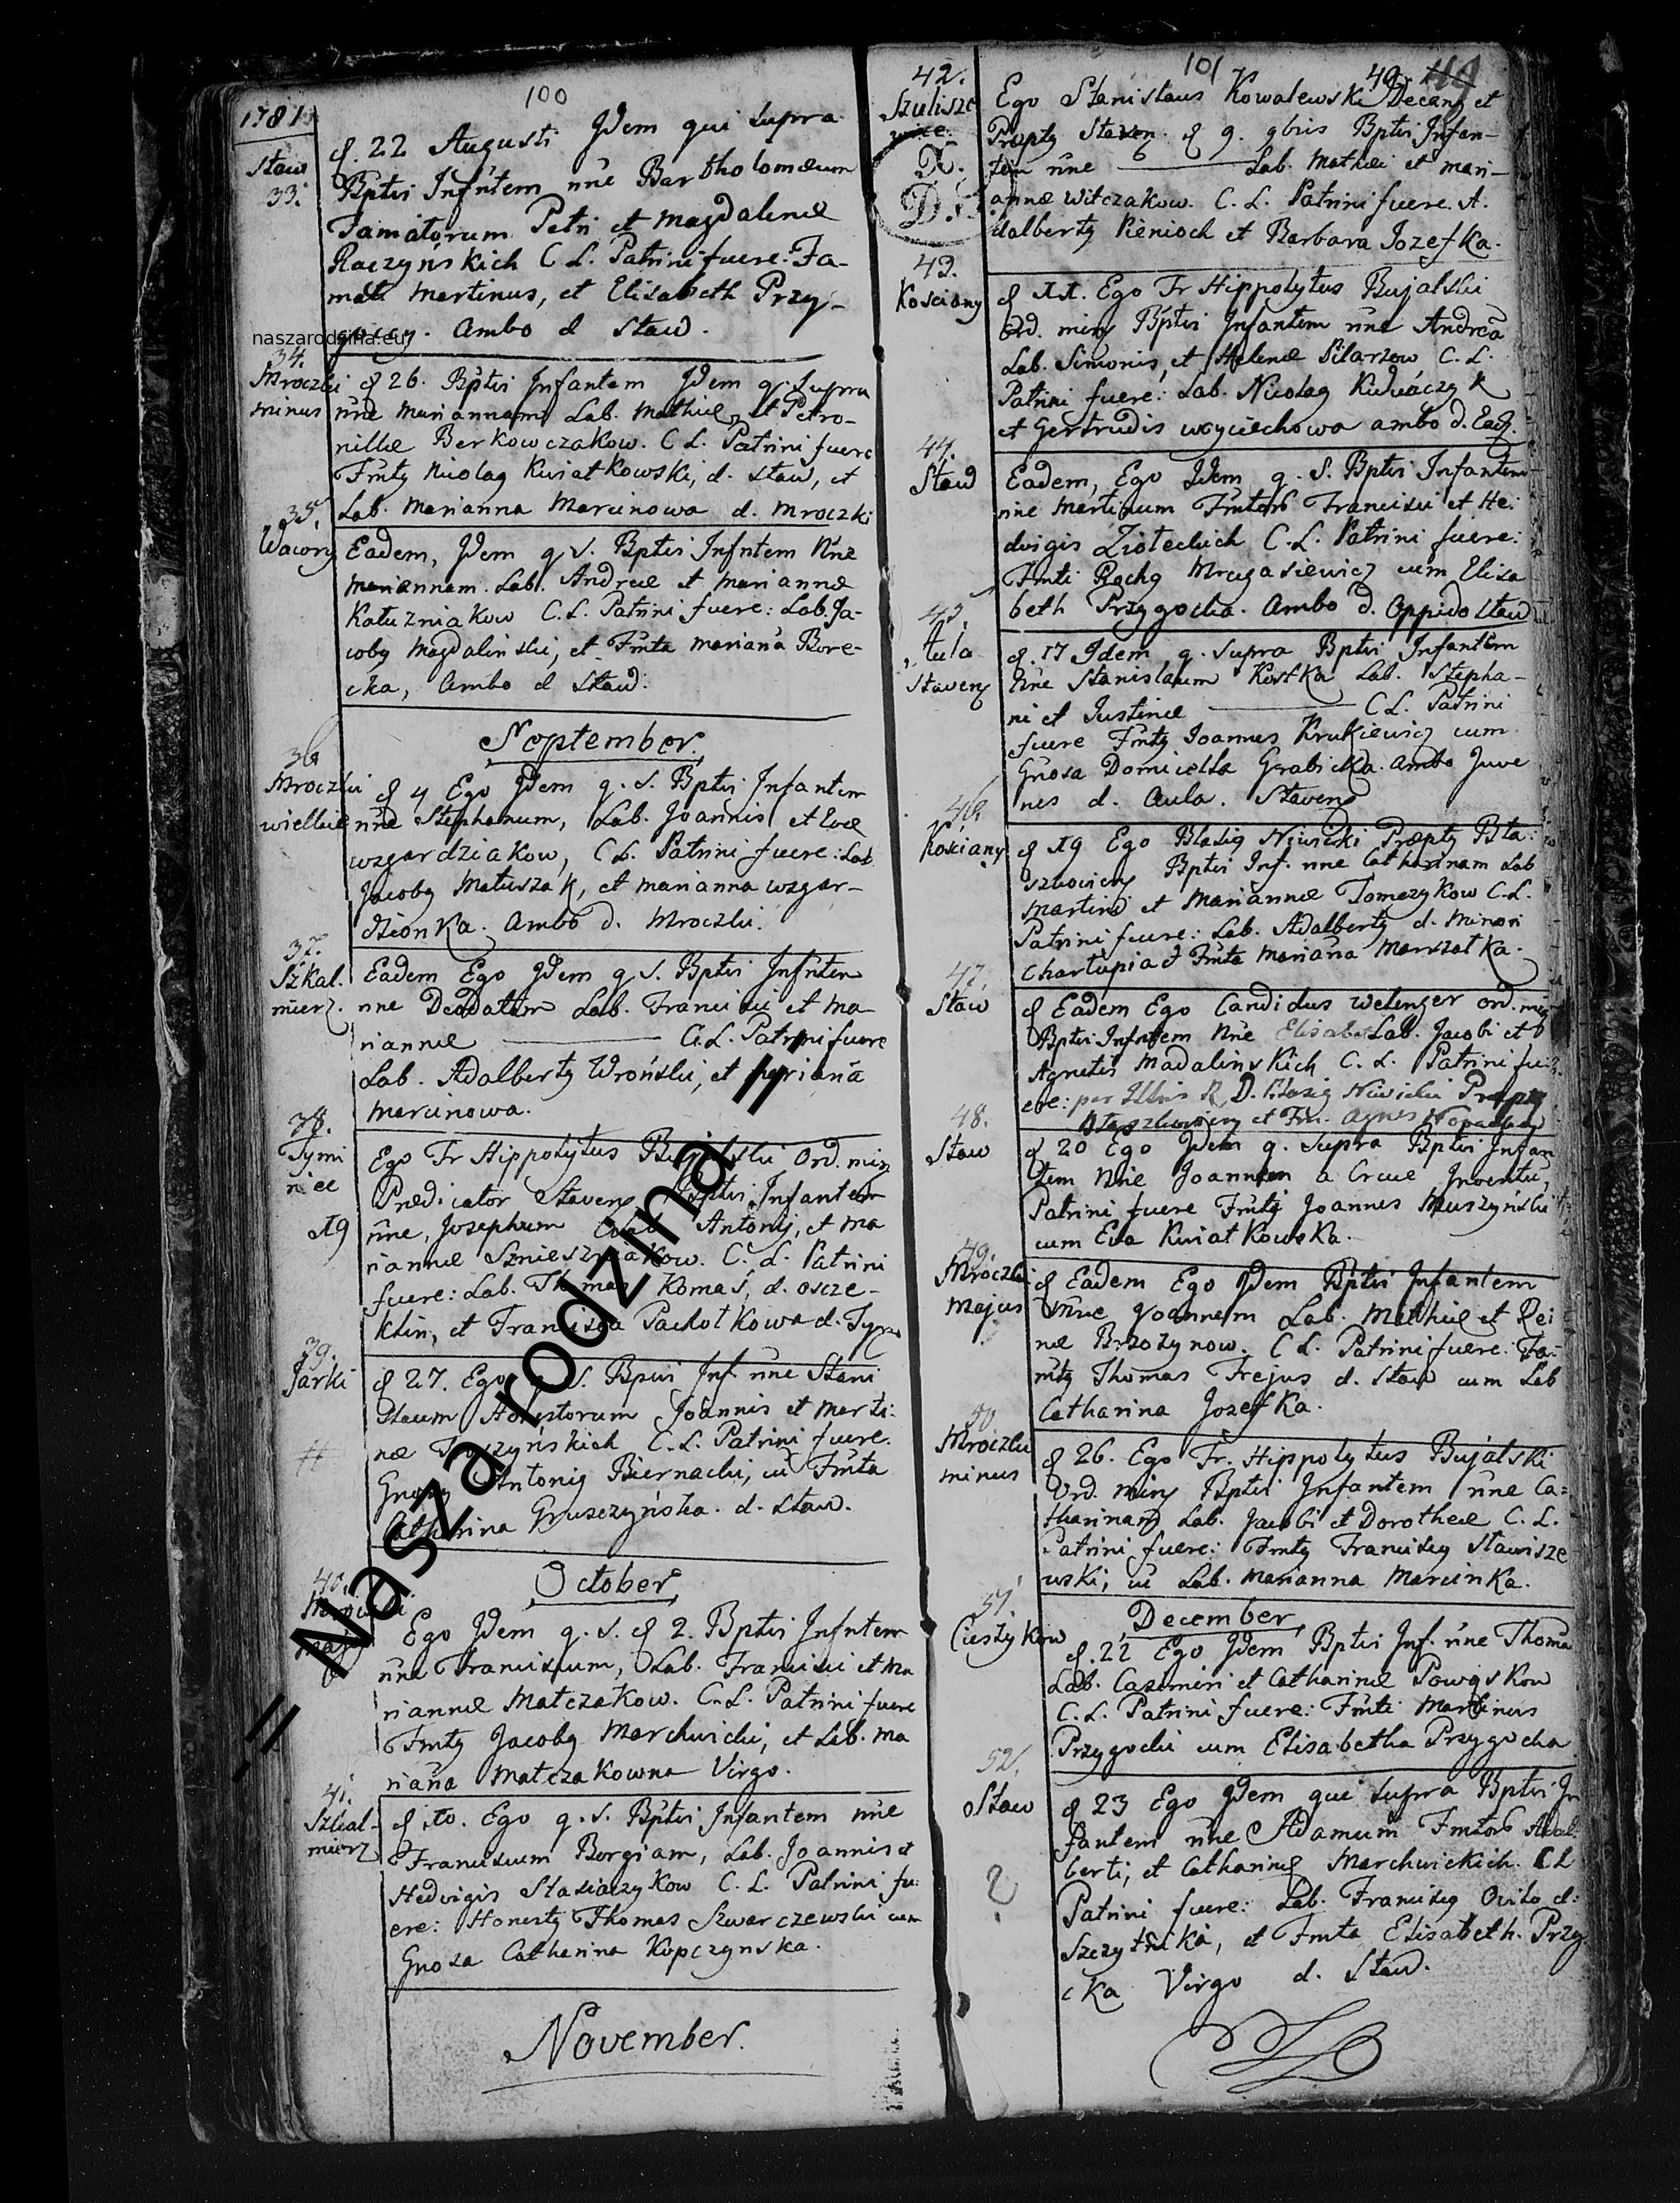 100
1781
Staw
33.
d. 22 Augusti Idem qui supra
Bptsi Infntem nne Bartholomæum
Famatorum Petri et Magdalenæ
Raczynskich C. L. Patrini fuere: Fa-
mati Martinus, et Elisabeth Przy-
goccy. Ambo d Staw.
naszarodzina.eu
34.
Mroczki
minus
d 26. Bptsi Infantem Idem q. supra
nne Mariannam Lab. Mathiæ, et Petro-
nillæ Berkowczakow. C L. Patrini fuere
Fmty Nicolag Kwiatkowski, d. Staw, et
Lab. Marianna Marcinowa d. Mroczki
35.
Wacory
Eadem, Idem q S. Bptsi Infntem Nne
Mariannam. Lab. Andreæ et Mariannæ
Katuzniakow C. L. Patrini fuere: Lab. Ja-
coby Magdalinski, et Fmta Mariana Bore-
cka, Ambo d Staw.
September.
36
Mroczki
wielkie
d 4 Ego Idem q. S. Bptsi Infantem
nne Stephanum, Lab. Joannis et Evæ
wzgardziakow, C L. Patrini fuere: Lab.
Jacoby Matuszak, et Marianna wzgar-
dzionka. Ambo d. Mroczki.
37.
Szkal.
mierz.
Eadem Ego Idem q S. Bptsi Infntem
nne Deodatum Lab. Francisci et Ma
riannæ C. L. Patrini fuere
Lab. Adalberty Wroński, et Mariana
Marcinowa.
38.
Tymi
niec
19
Ego Fr Hippolytus Bujalski Ord. min
Prædicator Staveng Bptsi Infantem
nne, Josephum Lab. Antonij, et Ma
riannæ Sznieszniakow. C. L. Patrini
fuere: Lab. Thomas Komas, d. Oscze-
klin, et Francisca Pachotkowa d. Tym
39.
Jarki
d 27. Ego S. Bptsi Inf nne Stani
slaum Honestorum Joannis et Marti-
næ C. L. Patrini fuere.
Antonig Biernacki, cu Fmta
Catharina Gruszczyńska. d. Staw.
October
40.
Mroczki
Maj
Ego Idem q. S. d 2. Bptsi Infntem
nne Franciscum, Lab. Francisci et Ma
riannæ Matczakow. C. L. Patrini fuere
Fmty Jacoby Marchwicki, et Lab. Ma
riana Matczakowna Virgo.
41.
Szkal-
mierz
d 10. Ego q. S. Bptsi Infantem nne
Franciscum Borgiam, Lab. Joannis et
Hedvigis Stasiaczykow C. L. Patrini fu-
ere: Honesty Thomas Szwarczewski cum
Gnosa Catharina Kopczynska.
November.
101
42.
Szulisze
wice.
X.
D.
Ego Stanislaus Kowalewski Decang et
Præpty Staven. d 9. 9bris Bptsi Infan-
tem nne Lab. Mathæi et Mari-
annæ Witczakow. C. L. Patrini fuere. A.
dalberty Pienioch et Barbara Jozefka.
43.
Kosciany
d 11. Ego Fr Hippolytus Bujalski
Ord. ming Bptsi Infantem nne Andrea
Lab. Simonis, et Helenæ Pilarzow C. L.
Patrini fuere: Lab. Nicolag Kudiaczyk
et Gertrudis Woyciechowa ambo d. Ead.
44.
Staw
Eadem, Ego Idem q. S. Bptsi Infantem
nne Martinum Fmtor Francisci et He:
dvigis Zioteckich C. L. Patrini fuere:
Fmti Rochg Mrugasiewicz cum Elisa
beth Przygocka. Ambo d. Oppido Staw
45.
Aula
Staveng
d. 17 Idem q. supra Bptsi Infantem
Nne Stanislaum Kostka Lab. Stepha-
ni et Justinæ C L. Patrini
fuere Fmty Joannes Krukiewicz cum
Gnosa Domicella Grabicka. Ambo Juve
nes d. Aula. Staveng
46.
Kosciany
d 19 Ego Blasig Niwicki Præpty Bta:
szkovieng Bptsi Inf. nne Catharinam Lab
Martini et Mariannæ Tomczykow C. L.
Patrini fuere: Lab. Adalberty d. Minori
Chartupia et Fmta Mariana Marszatka.
47.
Staw
d Eadem Ego Candidus Welenger Ord. ming
Bptsi Infntem Nne Elisabet Lab. Jacobi et
Agnetis Madalinskich C. L. Patrini fu-
ere: R. D. Blasig Niwicki Præpty
et Agnes
48.
Staw
d 20 Ego Idem q. Supra Bptsi Infan
tem Nne Joannem a Cruce Inventu,
Patrini fuere Fmty Joannes Muszyński
cum Eva Kwiatkowska.
49.
Mroczki
Majus
d Eadem Ego Idem Bptsi Infantem
Nne Joannem Lab. Mathiæ et Rei
næ Brzozynow. C L. Patrini fuere: Fa-
mty Thomas Frejus d. Staw cum Lab
Catharina Jozefka.
50
Mroczki
minus
d 26. Ego Fr. Hippolytus Bujalski
Ord. Ming Bptsi Infantem nne Ca-
tharinam Lab. Jacobi et Dorotheæ C. L.
Patrini fuere: Fmty Franciscy Stawisze
wski, cu Lab. Marianna Marcinka.
December
51.
Ciestykow
d. 22 Ego Idem Bptsi Inf. nne Thoma
Lab. Casimiri et Catharinæ Powąskow
C. L. Patrini fuere: Fmti Martinus
Przygocki cum Elisabetha Przygocka
52.
Staw
d 23 Ego Idem qui supra Bptsi In
fantem nne Adamum Fmtor Adal:
berti, et Catharinæ Marchwickich. C L
Patrini fuere: Lab. Franciscy Ovito d:
Szczytnika, et Fmta Elisabeth. Przy
cka Virgo d. Staw.
?
.:: Nasza rodzina ::.